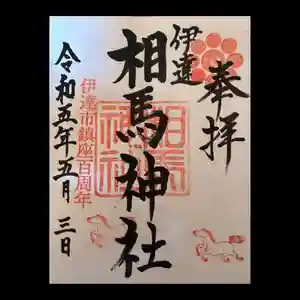 奉拝
伊達
相馬神社
相馬神社
伊達市鎮座百周年
令和五年五月三日